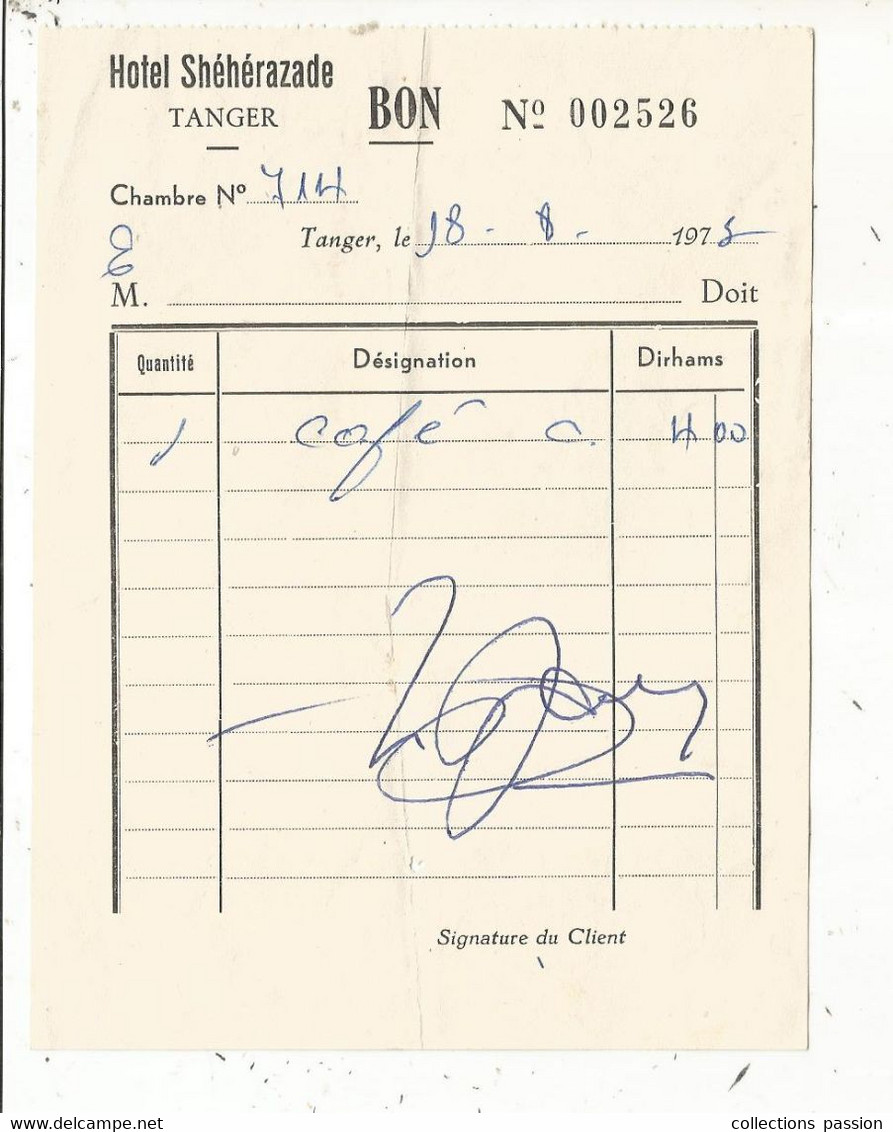 Hotel Shéhérazade
TANGER
BON Nº 002526
Chambre Nº 714
Tanger, le 18 - 8 - 1975
M. Doit
Quantité Désignation Dirhams
1 café c. 4 00
Signature du Client
collections passion